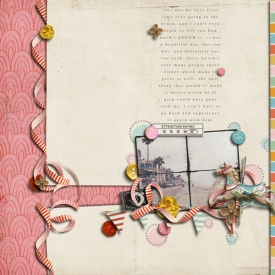 this was my very first
time ever going to the
beach, and i can't even
begin to tell you how
much i LOVED it. it was
a beautiful day, not too
hot, and definitely not
too cold. there weren't
very many people there
either which made it
great as well. the only
thing that would've made
it better would be if
greg could have gone
with me. i can't wait to
go back and experience
it again with him!
ATTRACTION RATING